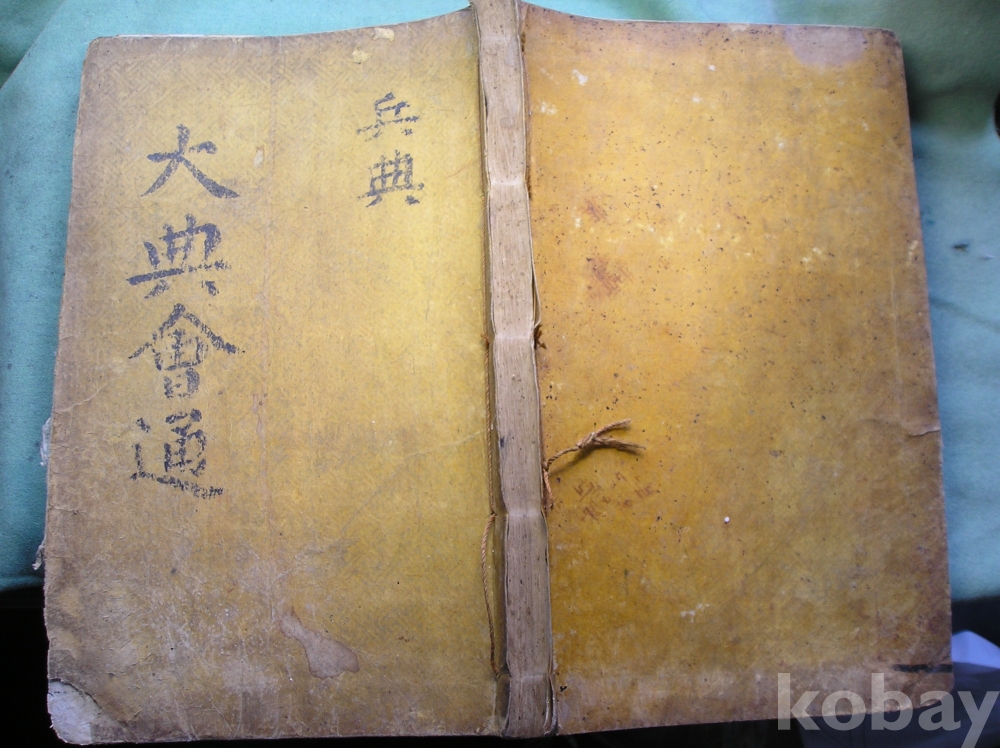 兵典
大典會通
kobay